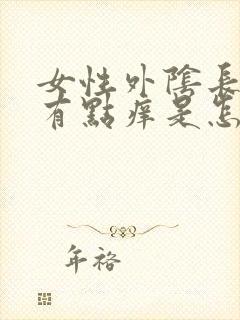 女性外陰長
有點痒是怎
年裕